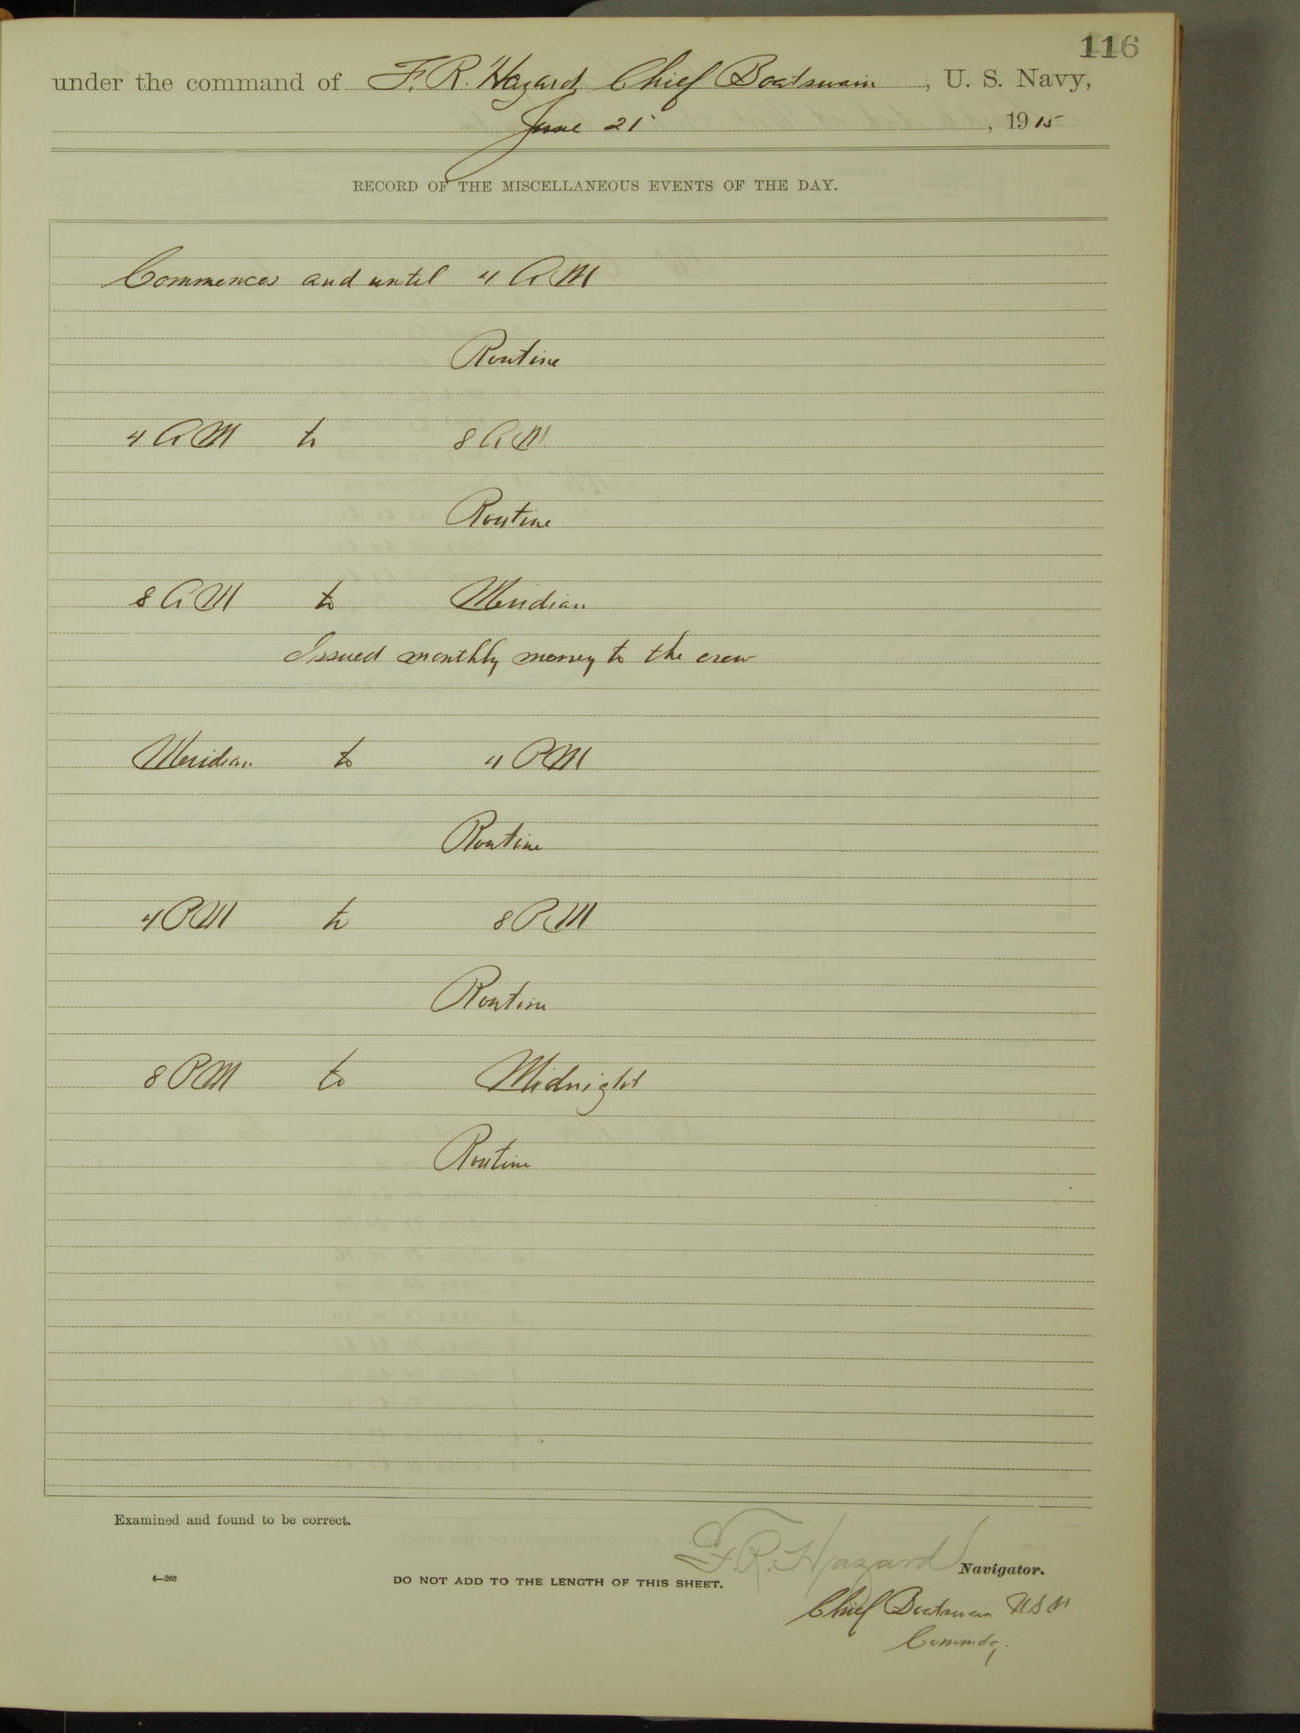 116
under the command of F. R. Hazard, Chief Boatswain, U. S. Navy,
June 21, 1915
RECORD OF THE MISCELLANEOUS EVENTS OF THE DAY.
Commences and until 4 AM
Routine
4 AM to 8 AM
Routine
8 AM to Meridian
Issued monthly money to the crew
Meridian to 4 PM
Routine
4 PM to 8 PM
Routine
8 PM to Midnight
Routine
Examined and found to be correct.
F. R. Hazard Navigator.
4—265 DO NOT ADD TO THE LENGTH OF THIS SHEET.
Chief Boatswain U S N
Commdg.